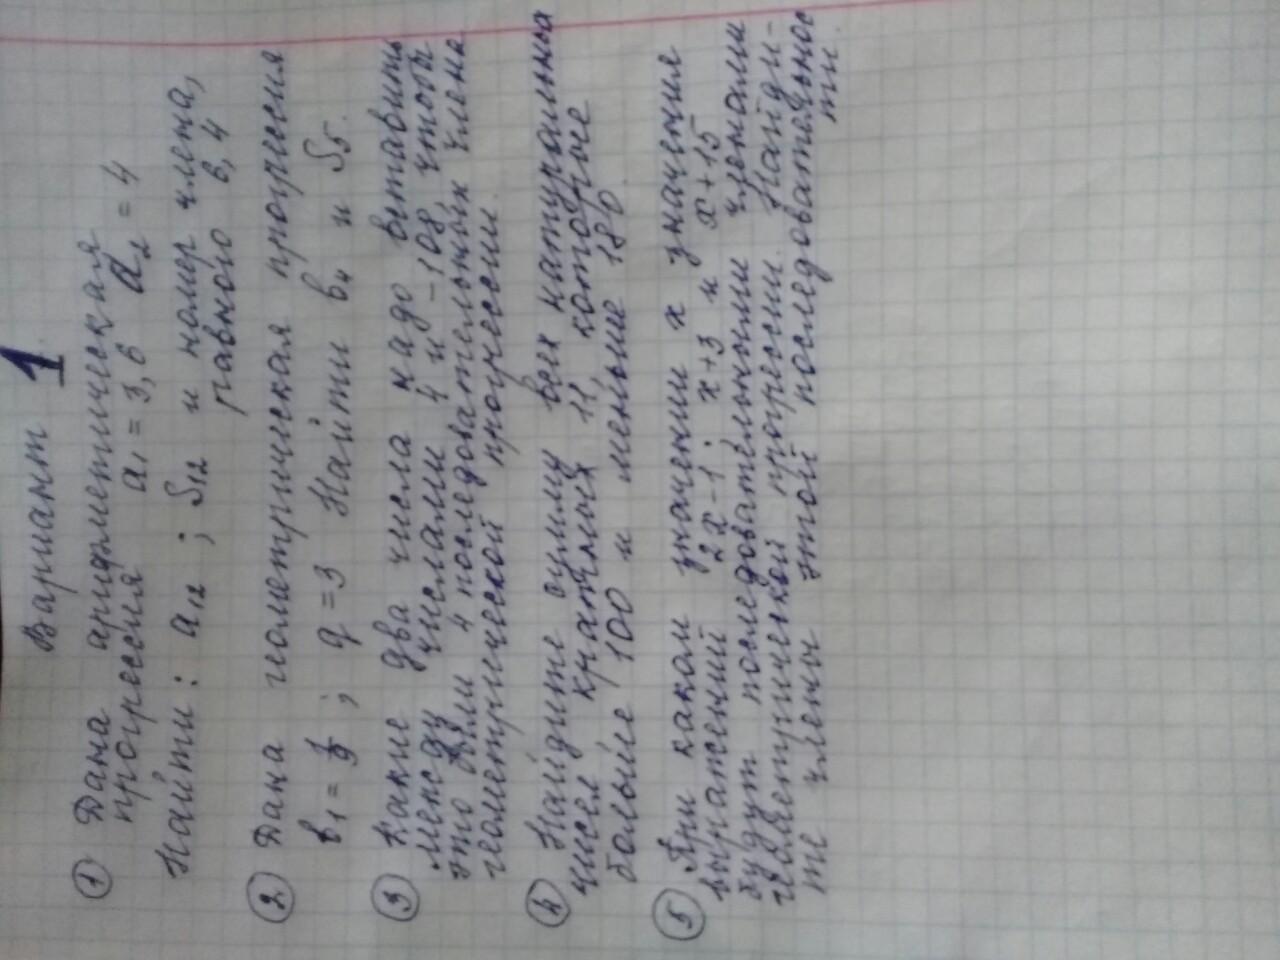 Вариант 1
① Дана арифметическая
прогрессия a₁ = 3,6 a₂ = 4
Найти: a₁₂ ; S₁₂ и номер члена,
равного 6,4
② Дана геометрическая прогрессия
в₁ = ; q = 3 Найти в₄ и S₅.
③ Какие два числа надо вставить
между числами 4 и -108, чтобы
это были 4 последовательных члена
геометрической прогрессии.
④ Найдите сумму всех натуральных
чисел кратных 11, которые
больше 100 и меньше 180.
⑤ При каком значении x значения
выражений 2x-1; x+3 и x+15
будут последовательными членами
геометрической прогрессии. Найди-
те члены этой последовательнос
ти.